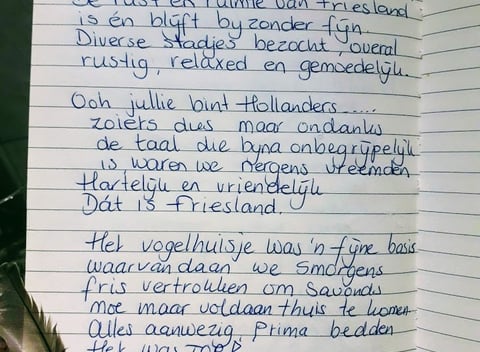 De rust en ruimte van Friesland
is én blijft byzonder fijn.
Diverse stadjes bezocht, overal
rustig, relaxed en gemoedelijk.
Ooh jullie bint Hollanders.....
zoiets dus maar ondanks
de taal die byna onbegrijpelijk
is waren we nergens vreemden
Hartelijk en vriendelijk
Dát is Friesland.
Het vogelhuisje was 'n fijne basis
waarvandaan we smorgens
fris vertrokken om savonds
moe maar voldaan thuis te komen
Alles aanwezig, prima bedden
Het was TOP